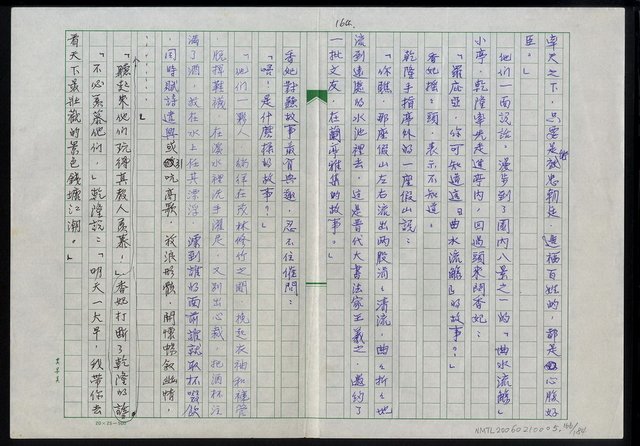 164.
率天之下,只要是誠忠朝廷,造福百姓的,都是心腹好
臣。」
他們一面說話,漫步到了園內八景之一的「曲水流觴」
小亭,乾隆率先走進亭內,回過頭來問香妃:
「羅庇亞,你可知道這曰曲水流觴的故事?」
香妃搖搖頭,表示不知道。
乾隆手指亭外的一座假山說:
「你瞧,那座假山左右流出兩股涓涓清流,曲曲折折地
淡到遠處的水池裡去。這是晉代大書法家王羲之,邀約了
一批文友,在蘭亭雅集的故事。」
香妃對聽故事最有興趣,忍不住催問:
「喂,是什麼樣的故事?」
「他們一夥人,徜徉在茂林修竹之間,挽起衣袖和褲管
脫掉鞋襪,在溪水裡洗手濯足,又別出心裁,把酒杯注
滿了酒,放在水上任其漂浮,漂到誰的面前誰就取杯啜飲
,同時賦詩遣興或引吭高歌,放浪形骸,開懷暢敘幽情,
……」
「聽起來他們玩得真教人羨慕!」香妃打斷了乾隆的話
「不必羨慕他們,」乾隆說:「明天一大早,我帶你去
看天下最壯觀的景色錢塘江潮。」
20×25=500
NMTL20060210005,166/184